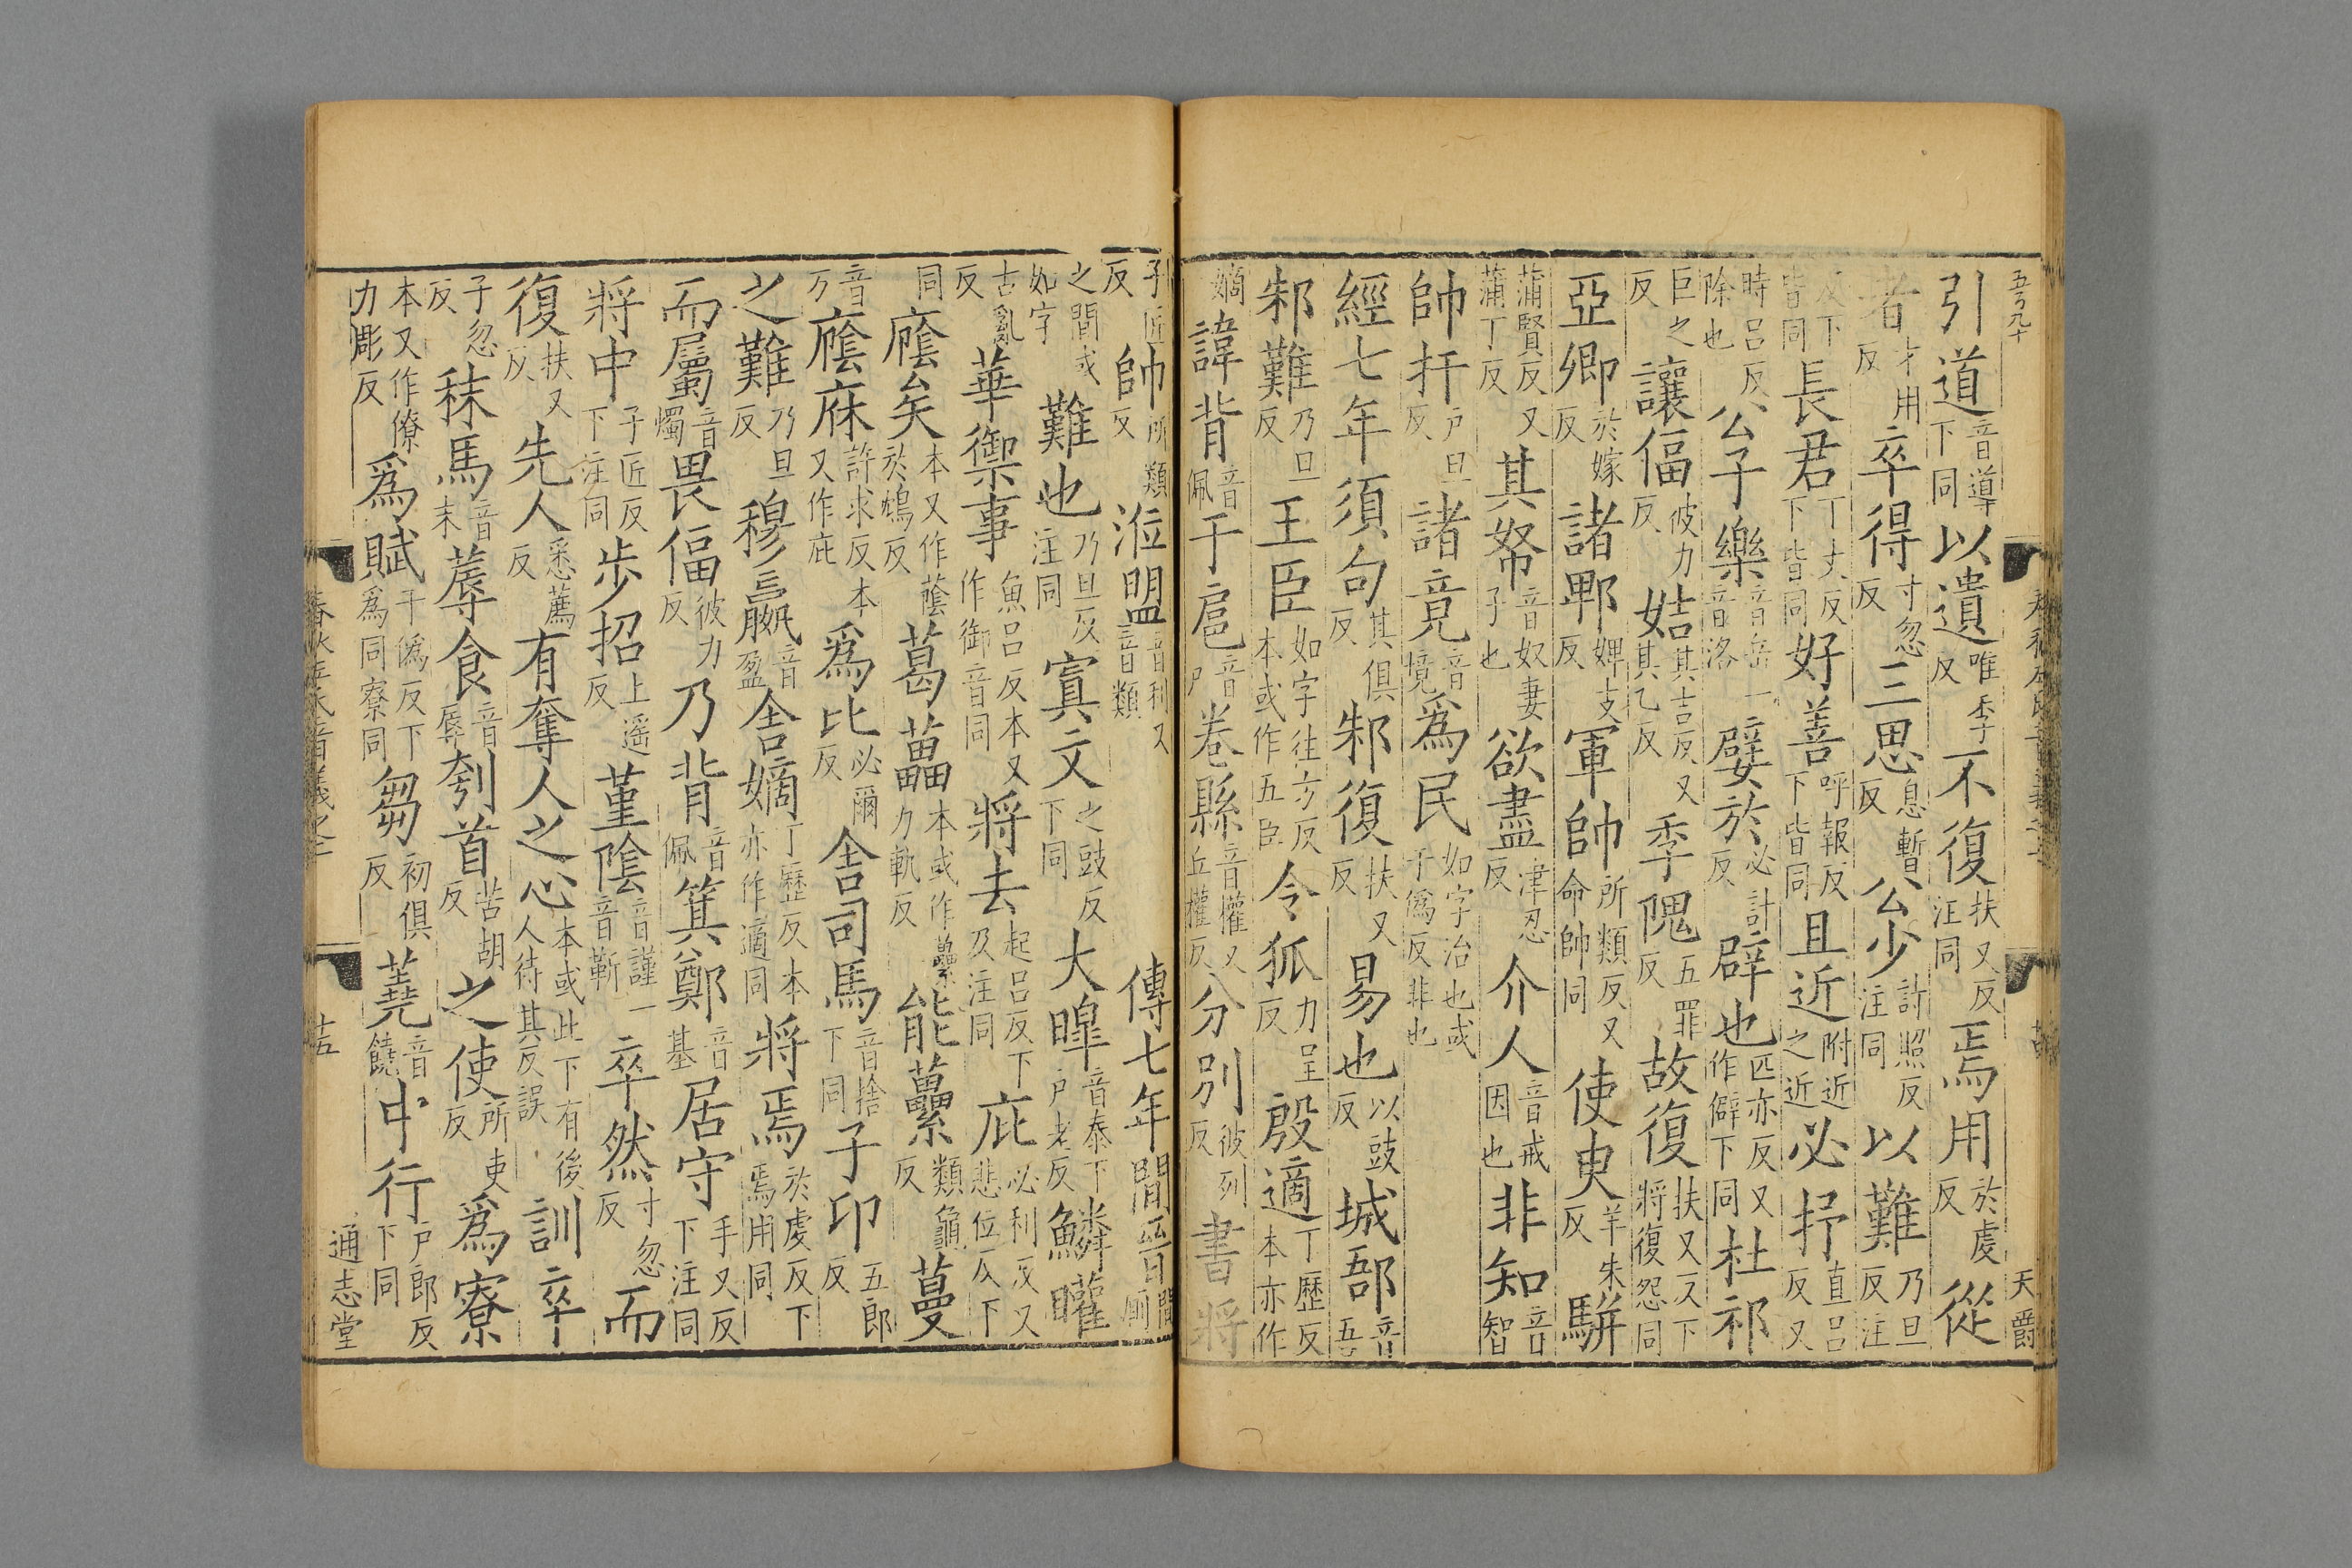 引道音導下同以遺唯季反不復扶又反注同焉用於虔反從
者才用反卒得寸忽反三思息暫反公少詩照反注同以難乃旦反注
反下皆同長君丁丈反下皆同好善呼報反下皆同且近附近之近必抒直呂反又
時呂反除也公子樂音岳一音洛嬖於必計反辟也匹亦反又作僻下同杜祁
巨之反讓偪彼力反姞其吉反又其乙反季隗五罪反故復扶又反下將復怨同
亞卿於嫁反諸鄆婢支反軍帥所類反又命帥同使臾羊朱反駢
蒲賢反又蒲丁反其帑音奴妻子也欲盡津忍反介人音戒因也非知音智
帥扞戶旦反諸竟音境爲民如字治也或于僞反非也
經七年須句其俱反邾復扶又反易也以豉反城郚音吾
邾難乃旦反王臣如字往方反本或作五臣令狐力呈反殷適丁歷反本亦作
嫡諱背音佩于扈音戶卷縣音權又丘權反分別彼列反書將
子匠反帥所類反涖盟音利又音類傳七年閒晉閒廁
之閒或如字難也乃旦反注同寘文之豉反下同大皥音泰下戶老反鱗矔
古亂反華禦事魚呂反本又作御音同將去起呂反下及注同庇必利反又悲位反下
同廕矣本又作蔭於鴆反葛藟本或作虆力軌反能虆類龜反蔓
音万廕庥許求反本又作庇爲比必爾反舍司馬音捨下同子印五郎反
之難乃旦反穆嬴音盈舍嫡丁歷反本亦作適同將焉於虔反下焉用同
而屬音燭畏偪彼力反乃背音佩箕鄭音基居守手又反下注同
將中子匠反下注同步招上遥反菫陰音謹一音靳卒然寸忽反而
復扶又反先人悉薦反有奪人之心本或此下有後人待其反誤訓卒
子忽反秣馬音末蓐食音辱刳首苦胡反之使所吏反爲寮
本又作僚力彫反爲賦于僞反下爲同寮同芻初俱反蕘音饒中行戶郎反下同
春秋左氏音義之二
十五
通志堂
天爵